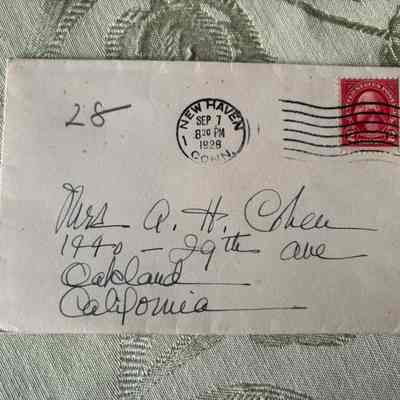 28
NEW HAVEN
SEP 7
8 30 PM
1928
CONN.
Mrs A. H. Cohen
1940 - 29th ave
Oakland
California